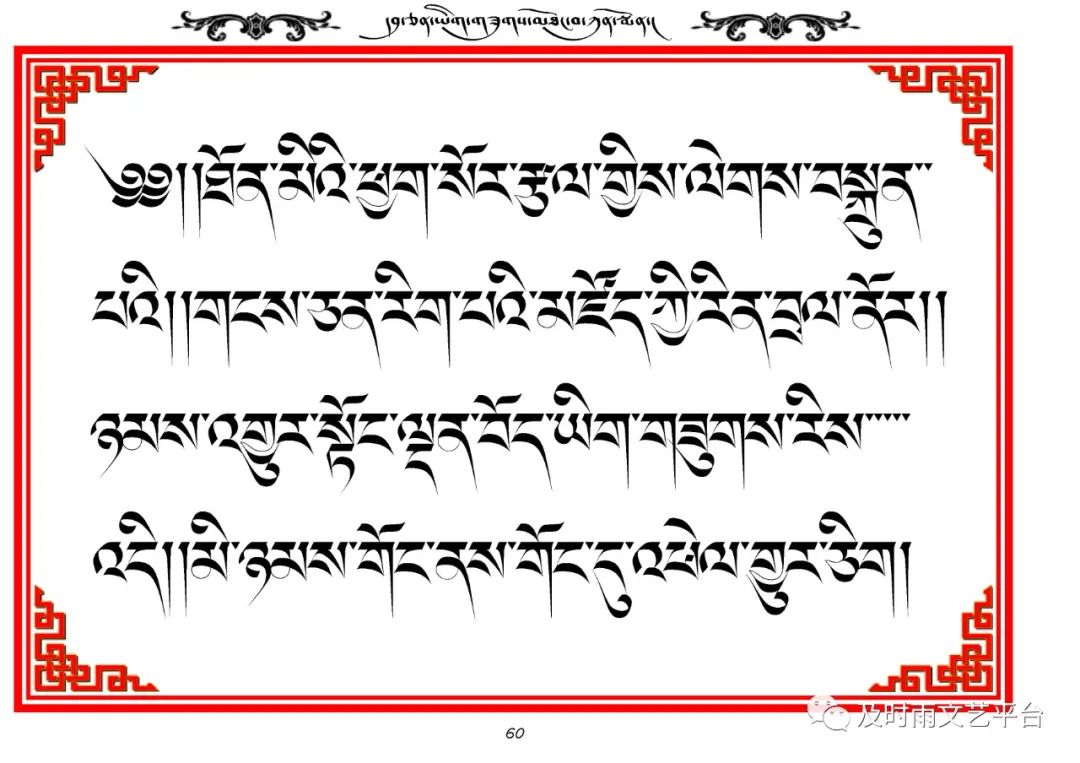 ༄༅།།ཐོན་མིའི་ཕྱག་སོར་རྩལ་གྱིས་ལེགས་བསྐྲུན་་
པའི།།གངས་ཅན་རིག་པའི་མཛོད་ཀྱི་རིན་བྲལ་ནོར།།
ཉམས་འགྱུར་སྟོང་ལྡན་བོད་ཡིག་གཟུགས་རིས་་་་་
འདི།།མི་ཉམས་གོང་ནས་གོང་དུ་འཕེལ་གྱུར་ཅིག།
及时雨文艺平台
60